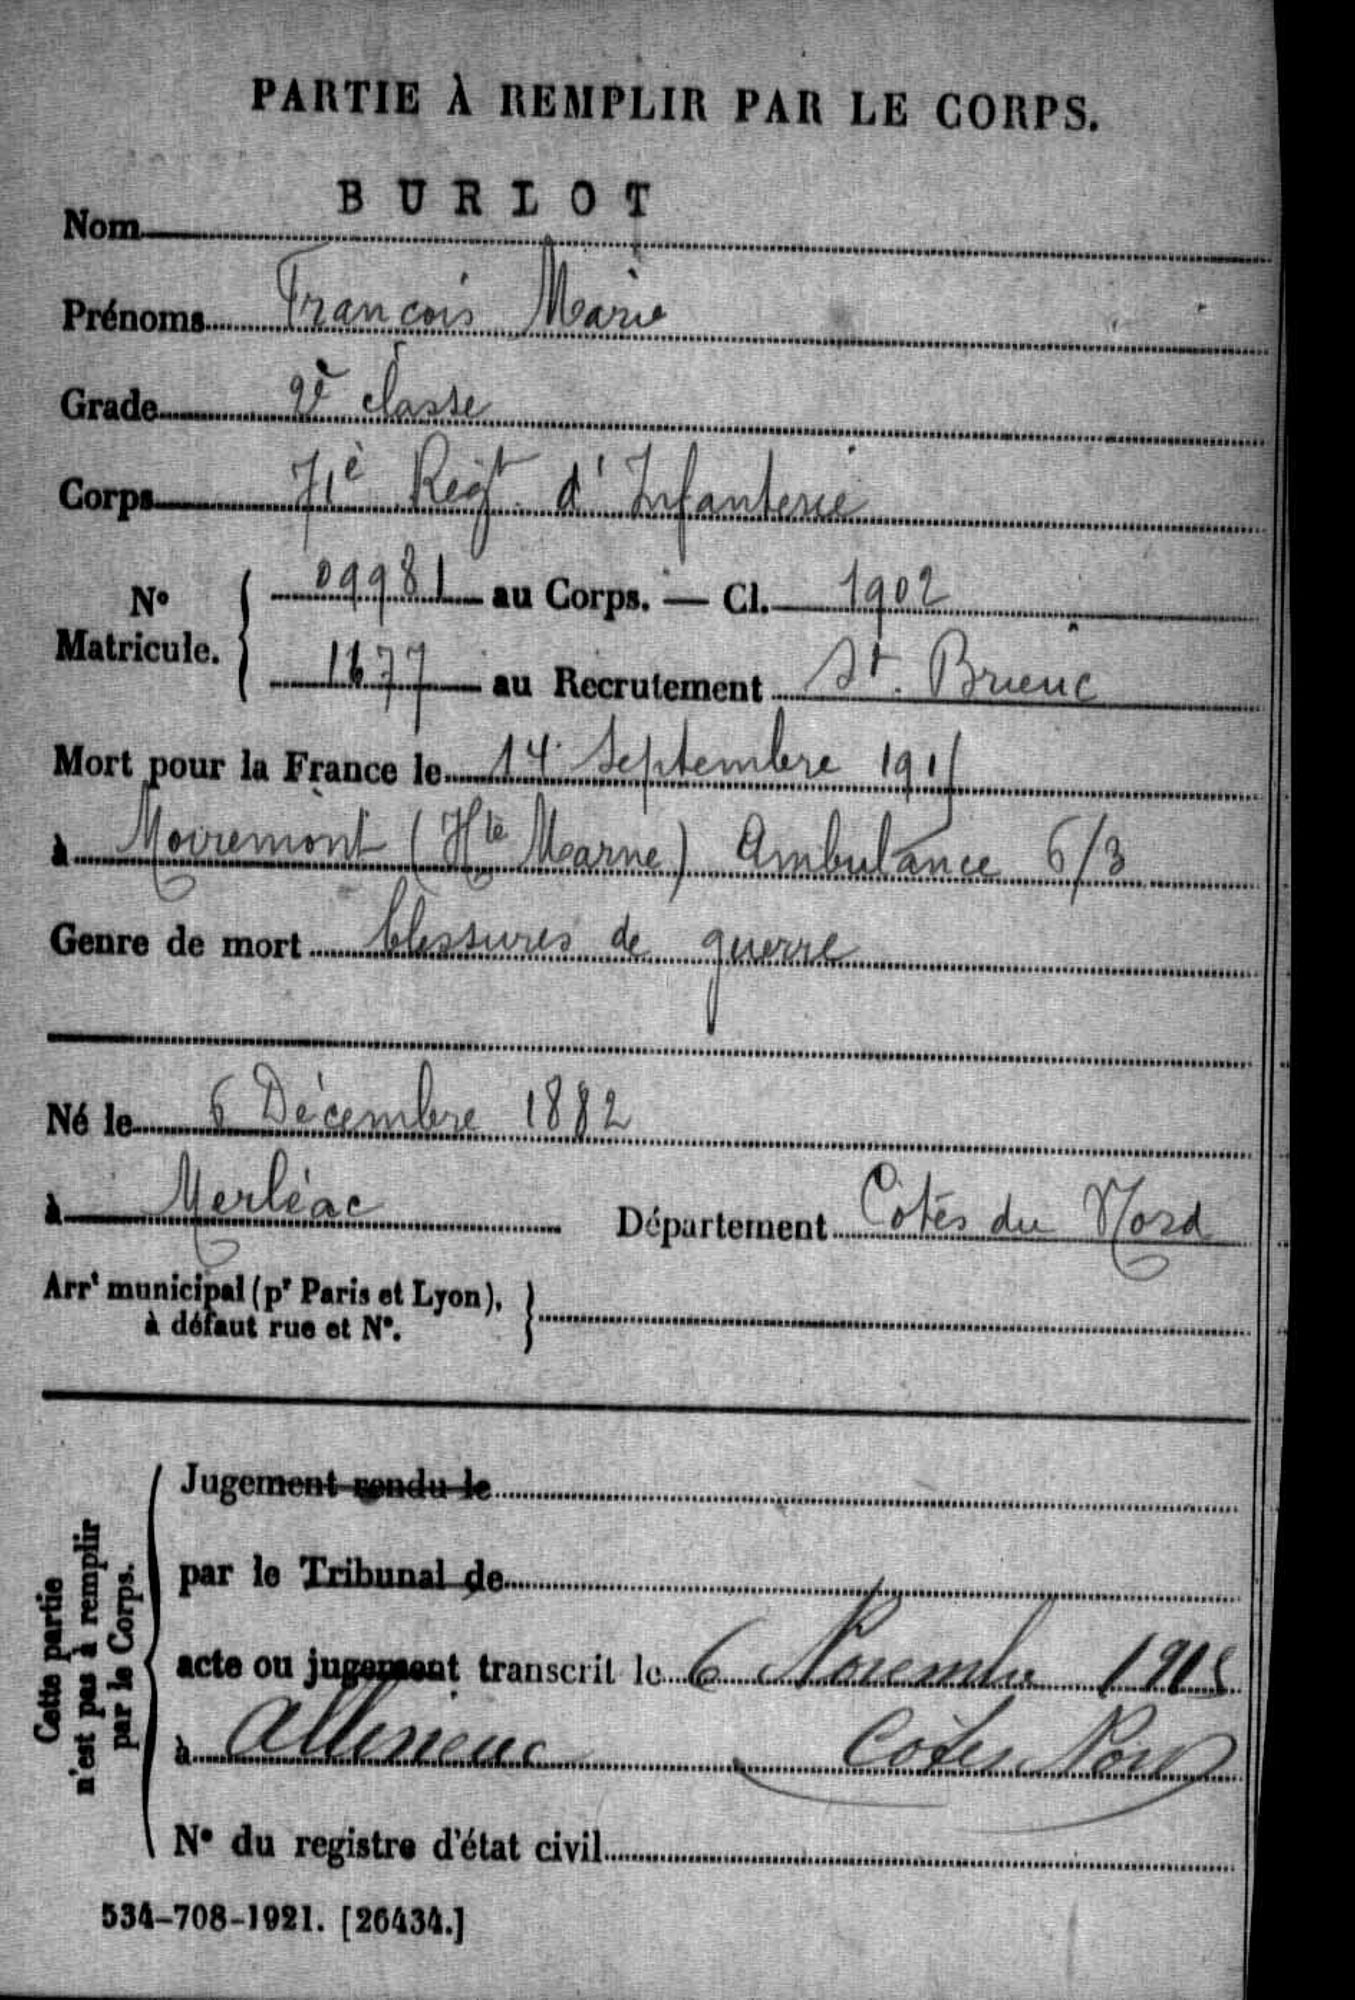 PARTIE À REMPLIR PAR LE CORPS.
Nom BURLOT
Prénoms François Marie
Grade 2è classe
Corps 71è Régt d'Infanterie
N° Matricule. { 09981 au Corps. — Cl. 1902
1677 au Recrutement St. Brieuc
Mort pour la France le 14 Septembre 1915
à Moiremont (Hte Marne) Ambulance 6/3
Genre de mort blessures de guerre
Né le 6 Décembre 1882
à Merléac Département Côtes du Nord
Arrt municipal (pr Paris et Lyon), à défaut rue et N°. }
Cette partie n'est pas à remplir par le Corps. {
Jugement rendu le
par le Tribunal de
acte ou jugement transcrit le 6 Novembre 1915
à Allineuc Côtes Nord
N° du registre d'état civil
534-708-1921. [26434.]